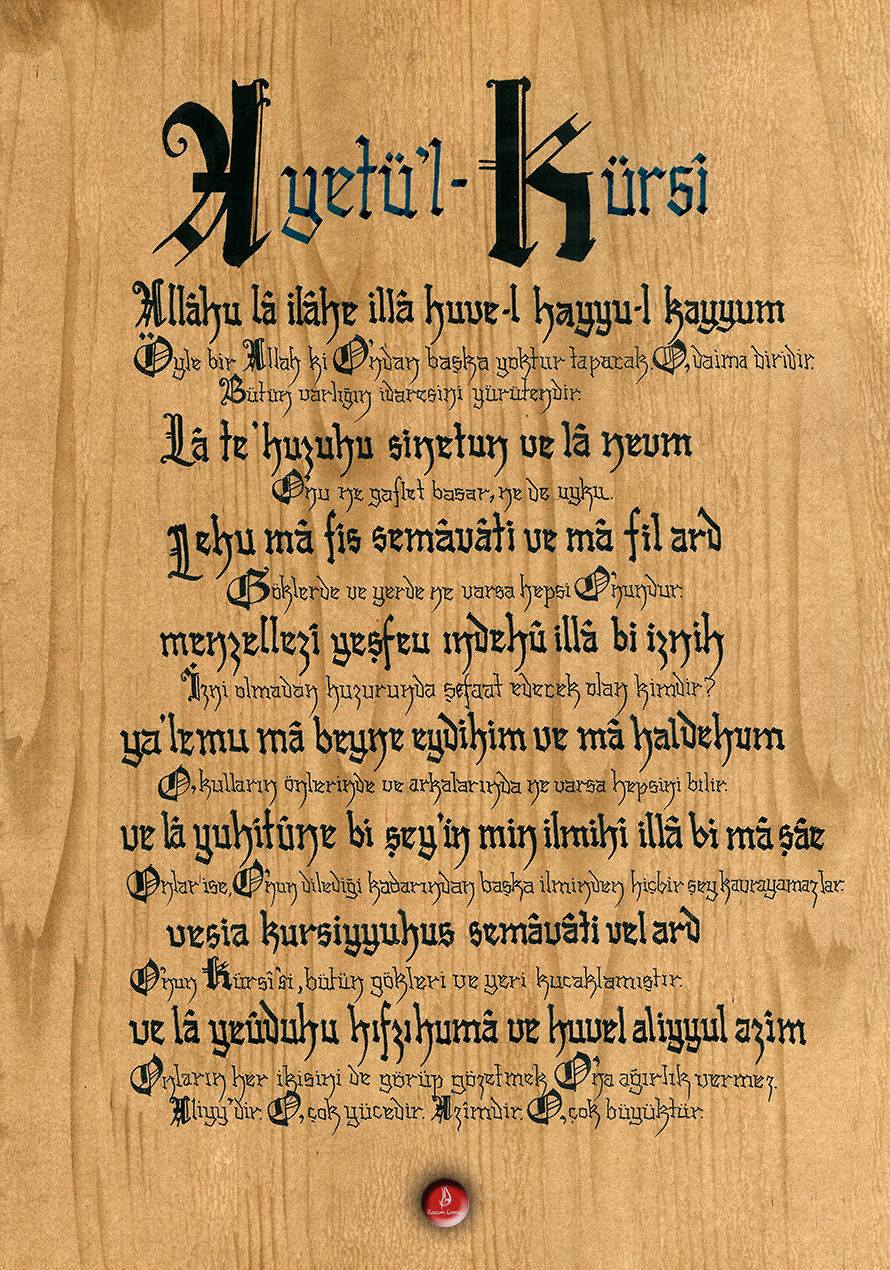 Ayetü'l-Kürsî
Allâhu lâ ilâhe illâ huve-l hayyu-l kayyum
Öyle bir Allah ki O'ndan başka yoktur tapacak. O, daima diridir.
Bütün varlığın idaresini yürütendir.
Lâ te'huzuhu sinetun ve lâ nevm
O'nu ne gaflet basar, ne de uyku.
Lehu mâ fîs semâvâti ve mâ fil ard
Göklerde ve yerde ne varsa hepsi O'nundur.
menzellezî yeşfeu ındehû illâ bi iznih
İzni olmadan huzurunda şefaat edecek olan kimdir?
ya'lemu mâ beyne eydihim ve mâ haldehum
O, kulların önlerinde ve arkalarında ne varsa hepsini bilir.
ve lâ yuhitûne bi şey'in min ilmihî illâ bi mâ şâe
Onlar'ise, O'nun dilediği kadarından başka ilminden hiçbir şey kavrayamazlar.
vesia kursiyyuhus semâvâti vel ard
O'nun Kürsî'si, bütün gökleri ve yeri kucaklamıştır.
ve lâ yeûduhu hıfzıhumâ ve huvel aliyyul azîm
Onların her ikisini de görüp gözetmek O'na ağırlık vermez.
Aliyy'dir. O, çok yücedir. Azîmdir. O, çok büyüktür.